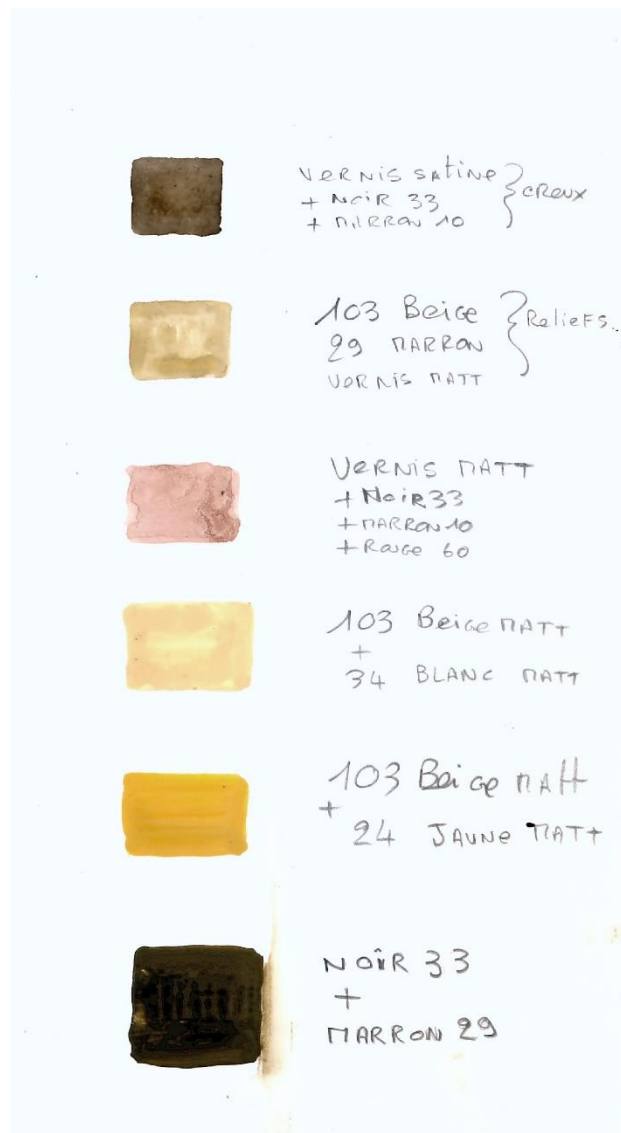 VERNIS SATINE } CREUX
+ NOIR 33
+ MARRON 10
103 Beige } Reliefs..
29 MARRON
VERNIS MATT
VERNIS MATT
+ Noir 33
+ MARRON 10
+ Rouge 60
103 Beige MATT
+
34 BLANC MATT
103 Beige MAtt
+
24 JAUNE MATT
NOÎR 33
+
MARRON 29